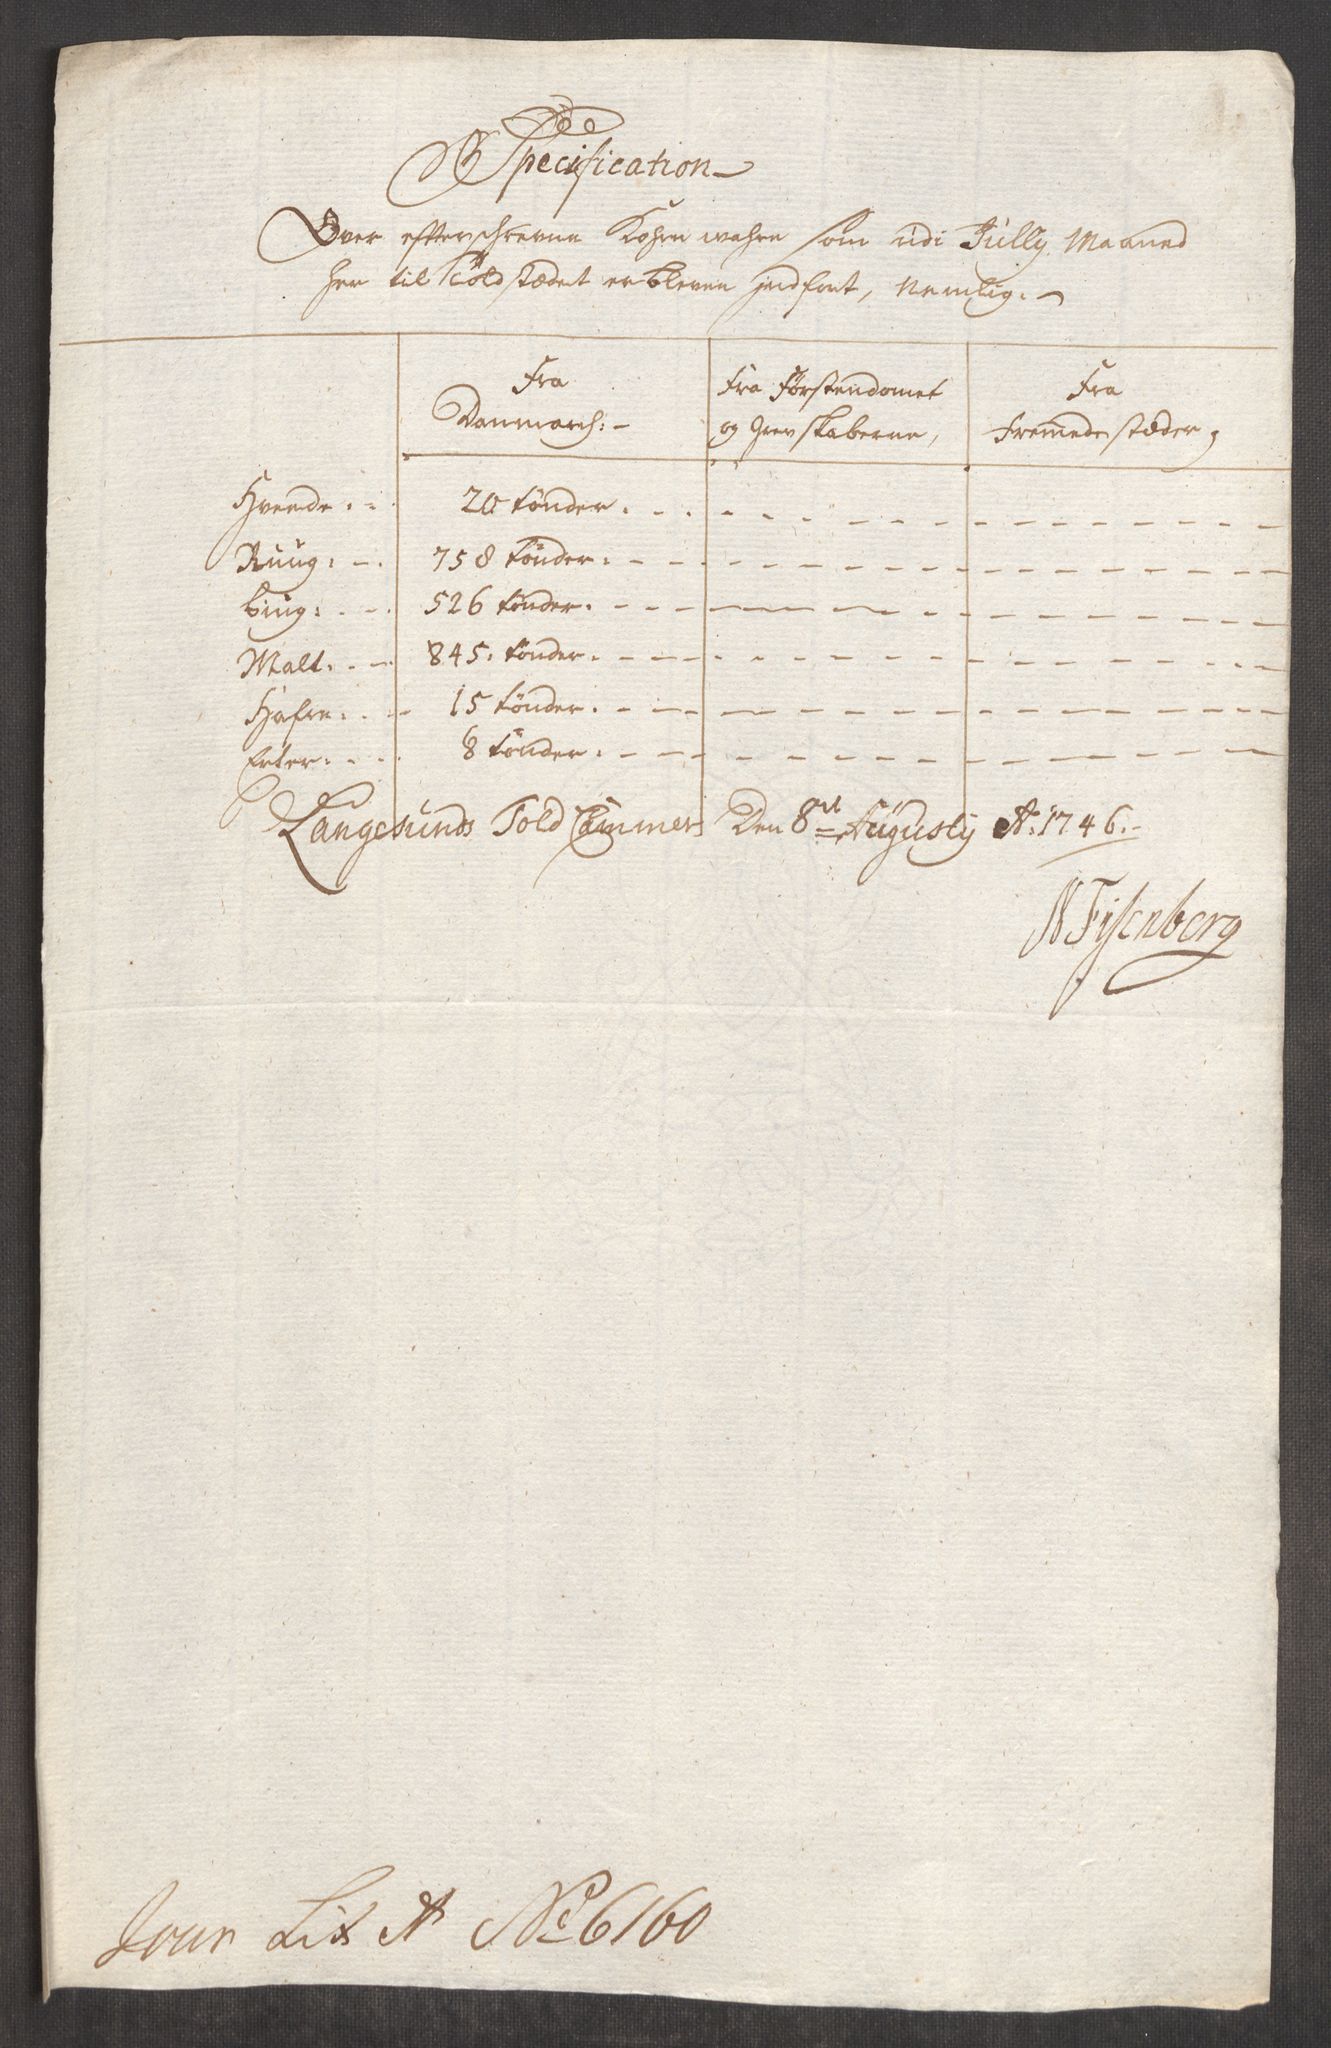 Specification
Over effterschrevne Kohrn wahre som udi Jully Maaned
her til Toldstædet er bleven indført, Nemlig.
Fra Danmarch:
Fra Förstendomet og Grevskaberne,
Fra Fremmede stæder,
Hvede. 20 tönder.
Ruug: 758 tönder.
biug: 526 tönder.
Malt. 845. tönder.
Hafre. 15 tönder.
Erter. 8 tönder.
Langesunds Told Cammer Den 8de Augusty Ao. 1746.
N Fisenberg
Jour Lit A No 6160